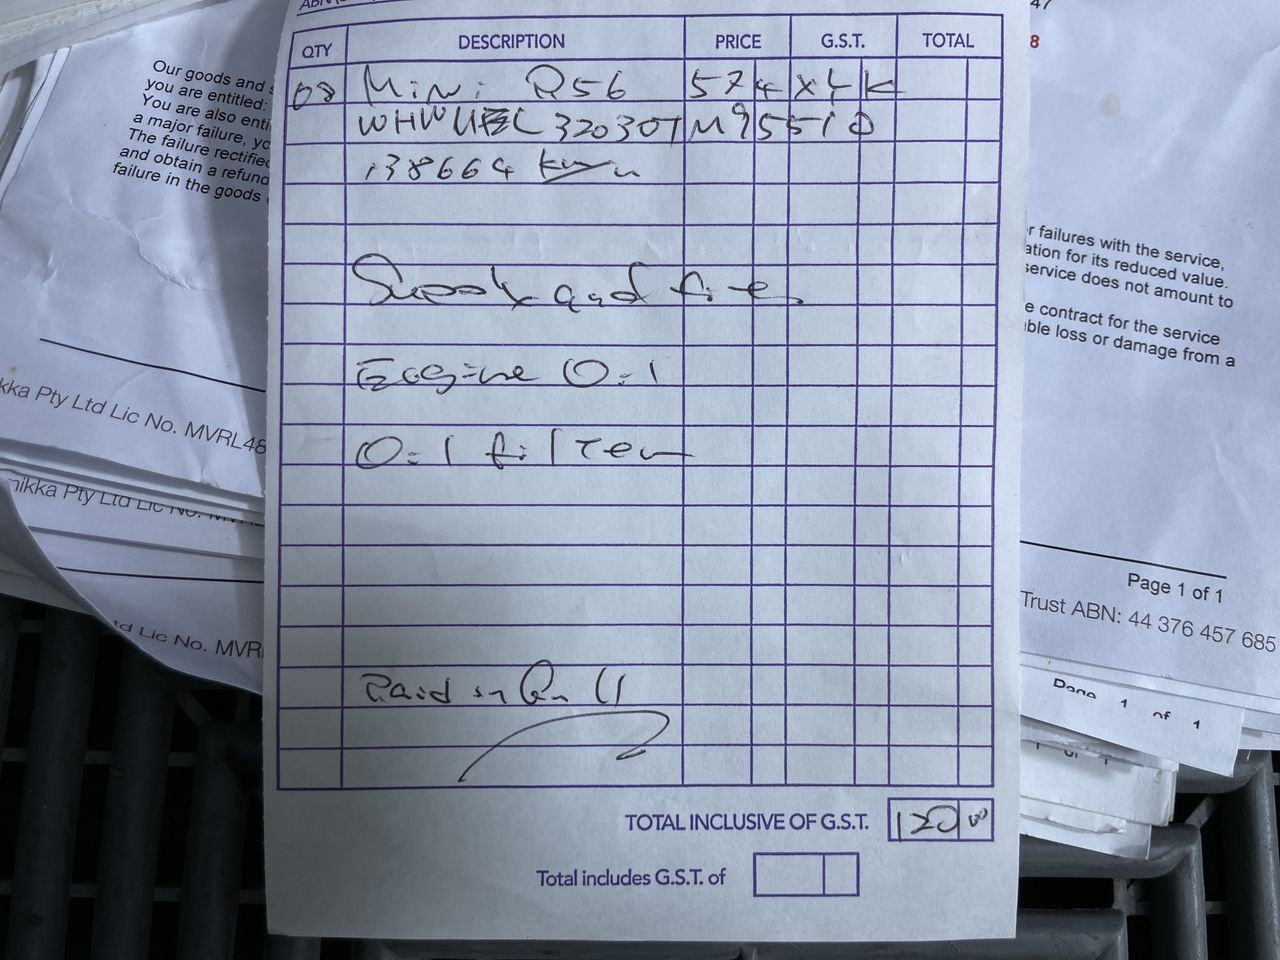 QTY DESCRIPTION PRICE G.S.T. TOTAL
08 Mini R56 574 XYK
138664 km
Supply and fit
Engine Oil
Oil filter
Paid in full
TOTAL INCLUSIVE OF G.S.T. 120 00
Total includes G.S.T. of
Our goods and
you are entitled:
You are also enti
a major failure, yo
The failure rectifie
and obtain a refund
failure in the goods
kka Pty Ltd Lic No. MVRL48
nikka Pty Ltd Lic No.
td Lic No. MVR
47
8
r failures with the service,
ation for its reduced value.
service does not amount to
e contract for the service
ble loss or damage from a
Page 1 of 1
Trust ABN: 44 376 457 685
Page 1 of 1